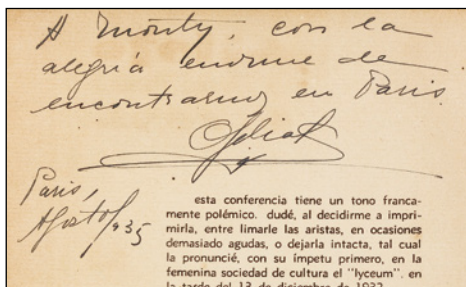 A Monty, con la
alegría enorme de
encontrarnos en Paris.
Paris,
Agosto/935
esta conferencia tiene un tono franca-
mente polémico. dudé, al decidirme a impri-
mirla, entre limarle las aristas, en ocasiones
demasiado agudas, o dejarla intacta, tal cual
la pronuncié, con su ímpetu primero, en la
femenina sociedad de cultura el "lyceum". en
la tarde del 13 de diciembre de 1932.